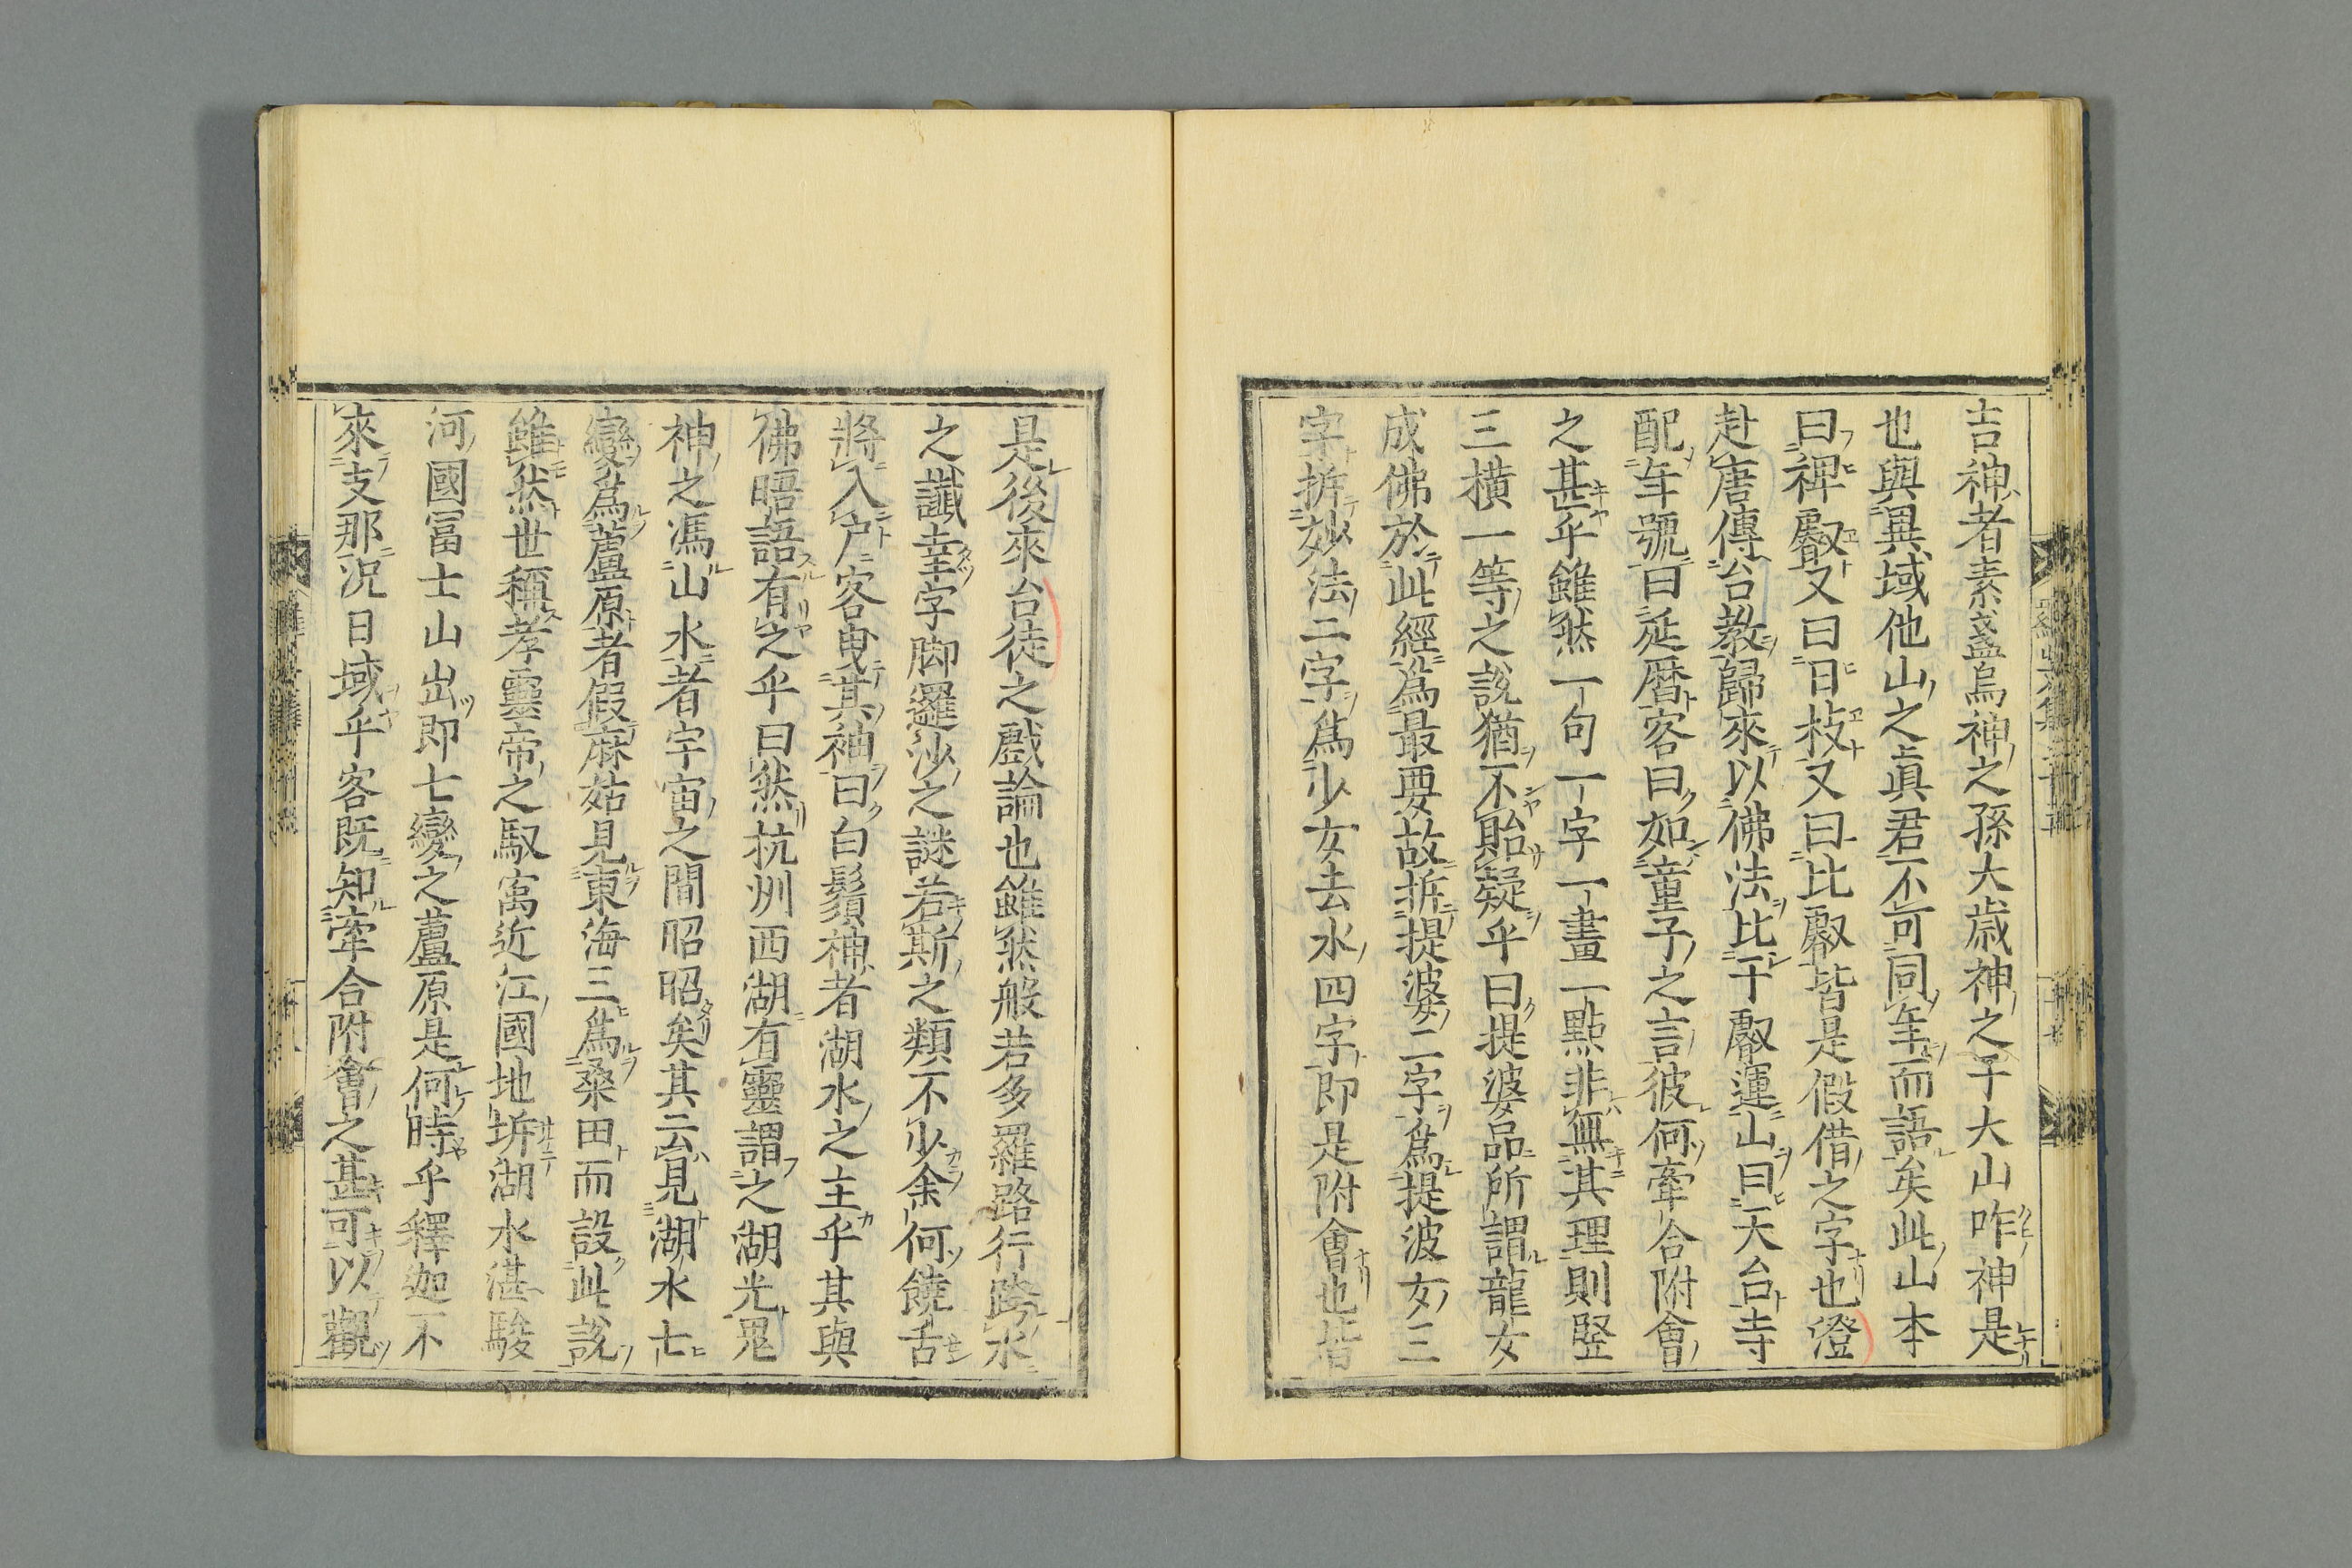 吉神者素盞烏神之孫大歳神之子大山咋神是
也與異域他山之眞君不可同年而語矣此山本
曰禆叡又曰日枝又曰比叡皆是假借之字也澄
赴唐傳台教歸來以佛法比于叡運山曰天台寺
配年號曰延暦客曰如童子之言彼何牽合附會
之甚乎雖然一句一字一畫一點非無其理則竪
三横一等之説猶不貽疑乎曰提婆品所謂龍女
成佛於此經爲最要故拆提婆二字爲提波女三
字拆妙法二字爲少女去水四字即是附會也皆
是後來台徒之戲論也雖然般若多羅路行跨水
之讖幸字脚邏沙之謎若斯之類不少余何饒舌
將入戸客曳其袖曰白鬚神者湖水之主乎其與
佛晤語有之乎曰然杭州西湖有靈謂之湖光鬼
神之馮山水者宇宙之間昭昭矣其云見湖水七
變爲蘆原者假麻姑見東海三爲桑田而設此説
雖然世稱孝靈帝之馭寓近江國地坼湖水湛駿
河國冨士山出即七變之蘆原是何時乎釋迦不
來支那况日域乎客既知牽合附會之甚可以觀